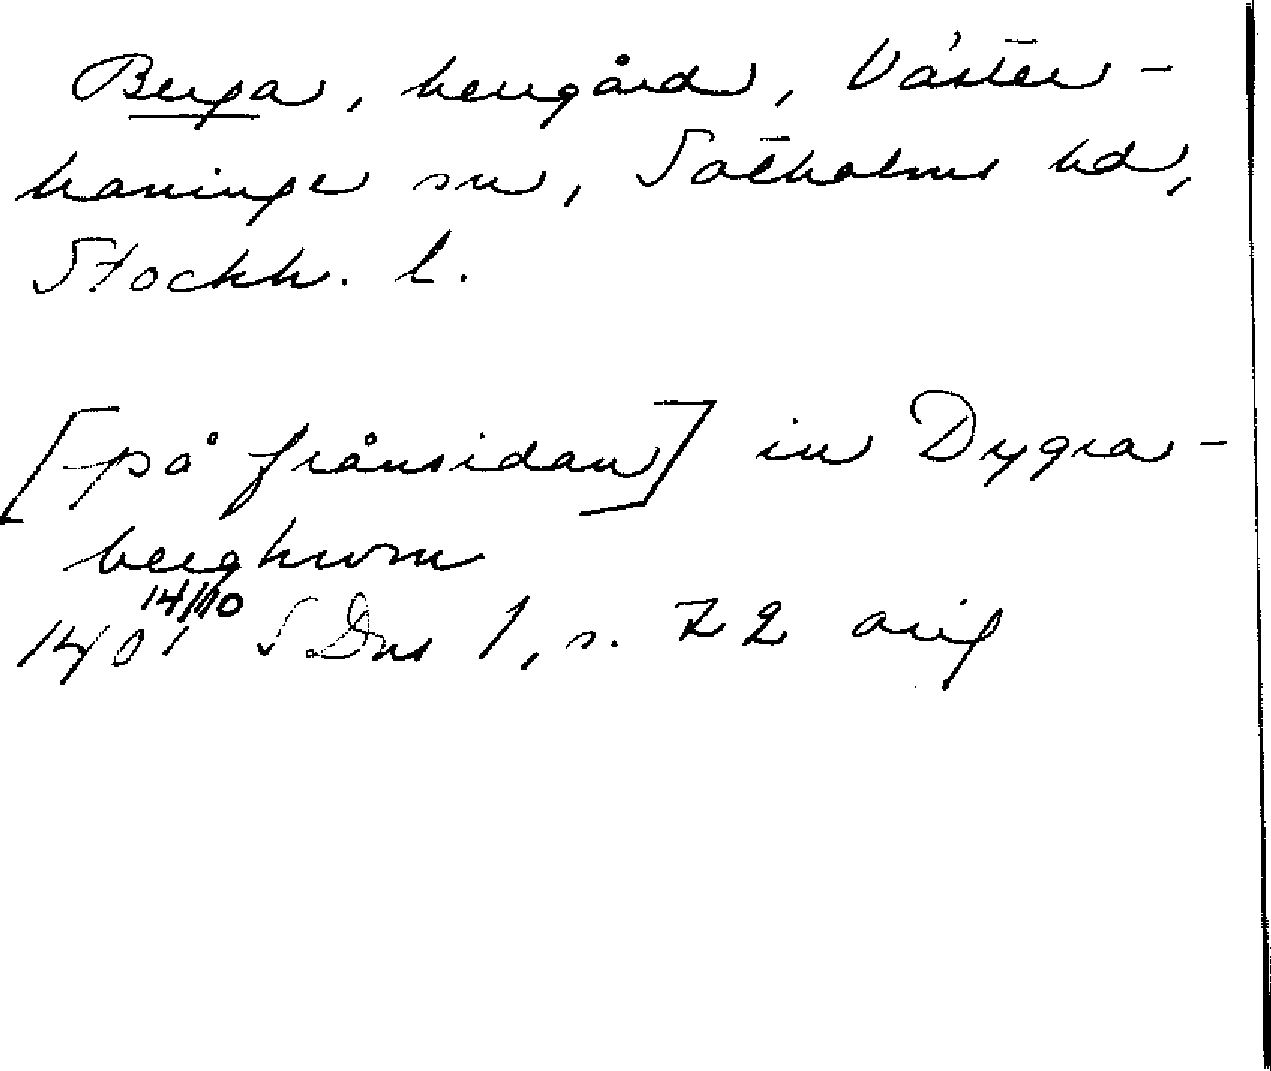 Berga, herrgård, Väster-
haninge sn, Sotholms hd,
Stockh. l.
[på frånsidan] in Dygra-
berghum
14/10
1401 SDns 1, s. 72 orig